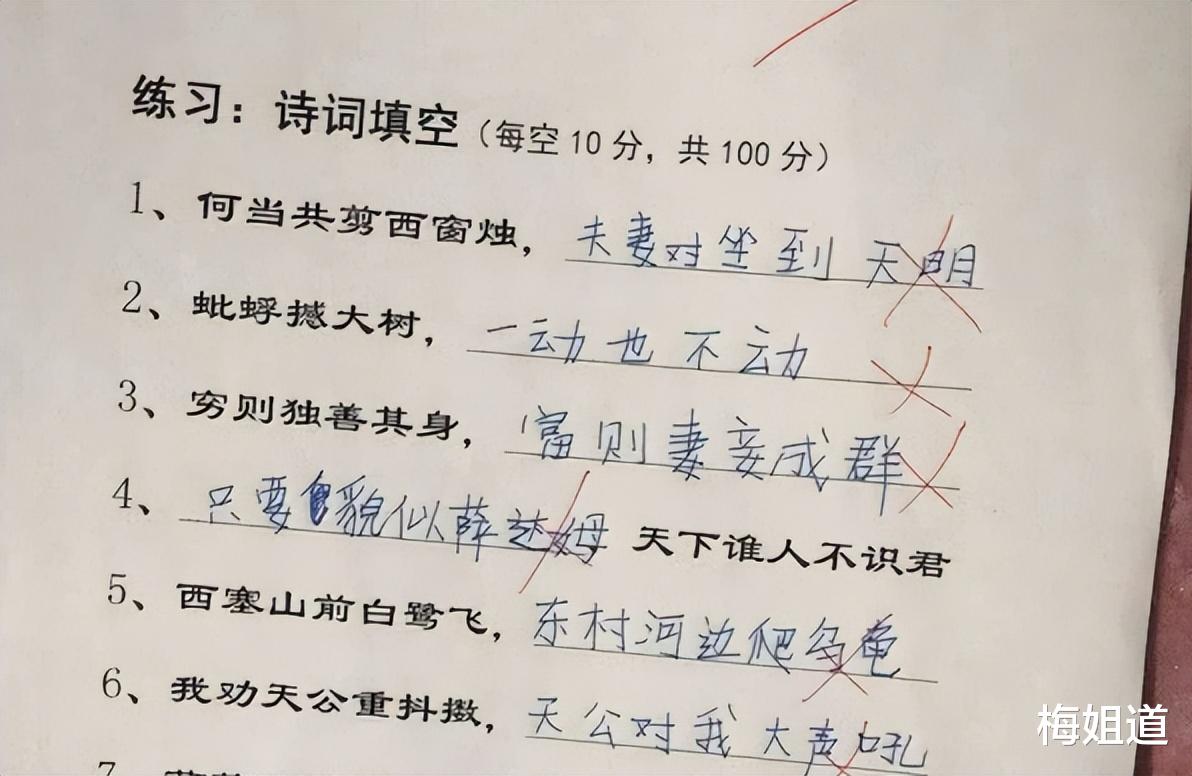 练习：诗词填空（每空10分，共100分）
1、何当共剪西窗烛，夫妻对坐到天明
2、蚍蜉撼大树，一动也不动
3、穷则独善其身，富则妻妾成群
4、只要貌似薛达姆 天下谁人不识君
5、西塞山前白鹭飞，东村河边爬乌龟
6、我劝天公重抖擞，天公对我大声吼
7、
梅姐道